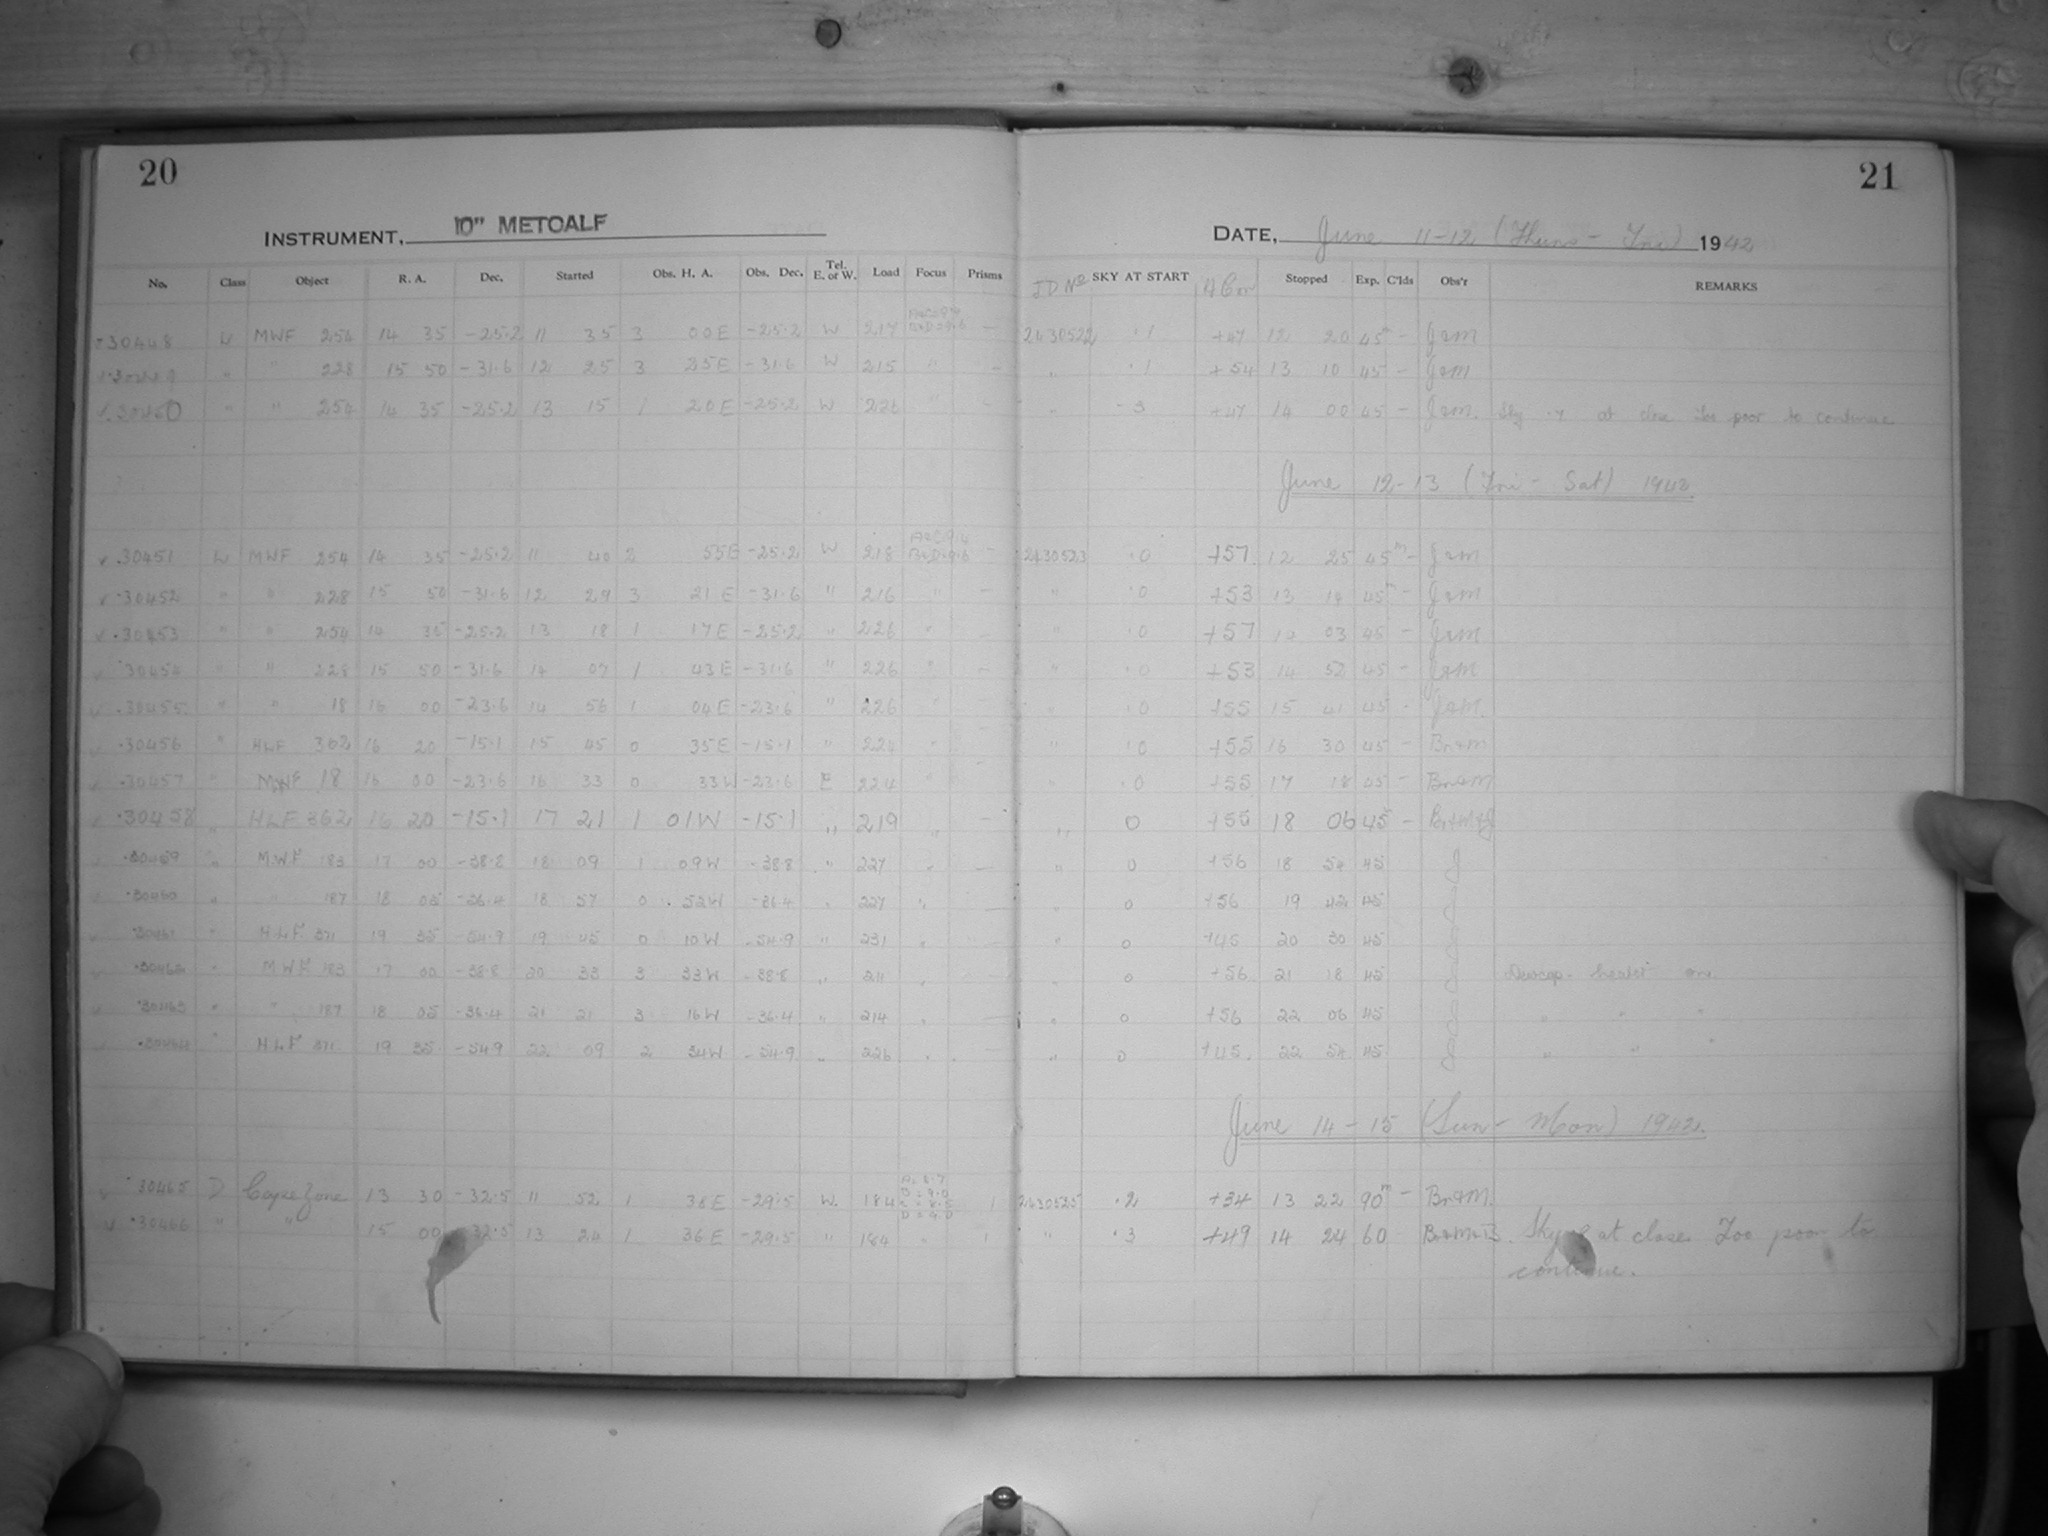 20
21
INSTRUMENT, 10" METCALF
DATE, June 11-12 (Thurs - Fri) 1942
No. Class Object R. A. Dec. Started Obs. H. A. Obs. Dec. Tel. E. or W. Load Focus Prisms JD No SKY AT START Stopped Exp. C'lds Obs'r REMARKS
30448 W MWF 254 14 35 -25.2 11 35 3 00E -25.2 W 217 - 2430522 .1 +47 12 20 45m - J&M
" " 228 15 50 -31.6 12 25 3 25E -31.6 W 215 " - " .1 +54 13 10 45 - J&M
30450 " " 254 14 35 -25.2 13 15 1 20E -25.2 W 226 " - " 3 +47 14 00 45 - J&M. Sky at close Too poor to continue
June 12-13 (Fri - Sat) 1942.
30451 W MWF 254 14 35 -25.2 11 40 2 55E -25.2 W 218 - 2430523 .0 +57 12 25 45m - J&M
30452 " " 228 15 50 -31.6 12 29 3 21E -31.6 " 216 " - " .0 +53 13 14 45m - J&M
30453 " " 254 14 35 -25.2 13 18 1 17E -25.2 " 226 " - " .0 +57 14 03 45 - J&M
30454 " " 228 15 50 -31.6 14 07 1 43E -31.6 " 226 " - " .0 +53 14 52 45 - J&M
30455 " " 18 16 00 -23.6 14 56 1 04E -23.6 " 226 " - " .0 +55 15 41 45 - J&M.
30456 " HLF 362 16 20 -15.1 15 45 0 35E -15.1 " 224 " - " .0 +55 16 30 45 - Br&M
30457 " MWF 18 16 00 -23.6 16 33 0 33W -23.6 E 224 " - " .0 +55 17 18 45 - Br&M
30458 " HLF 362 16 20 -15.1 17 21 1 01W -15.1 " 219 " - " 0 +55 18 06 45 - Br&M&J
30459 " MWF 183 17 00 -38.8 18 09 1 09W -38.8 " 227 " - " 0 +56 18 54 45 J
30460 " " 187 18 05 -36.4 18 57 0 52W -36.4 " 227 " - " 0 +56 19 42 45 J
30461 " HLF 371 19 35 -54.9 19 45 0 10W -54.9 " 231 " - " 0 +45 20 30 45 J
30462 " MWF 183 17 00 -38.8 20 33 3 33W -38.8 " 211 " - " 0 +56 21 18 45 J Dewcap heater on.
30463 " " 187 18 05 -36.4 21 21 3 16W -36.4 " 214 " - " 0 +56 22 06 45 J " " "
30464 " HLF 371 19 35 -54.9 22 09 2 34W -54.9 " 226 " - " 0 +45 22 54 45 J " " "
June 14-15 (Sun - Mon) 1942.
30465 D Cape Zone 13 30 -32.5 11 52 1 38E -29.5 W. 184 1 2430525 .2 +34 13 22 90m - Br&M.
30466 " " 15 00 -32.5 13 24 1 36E -29.5 " 184 " 1 " .3 +49 14 24 60 Sky at close. Too poor to
continue.